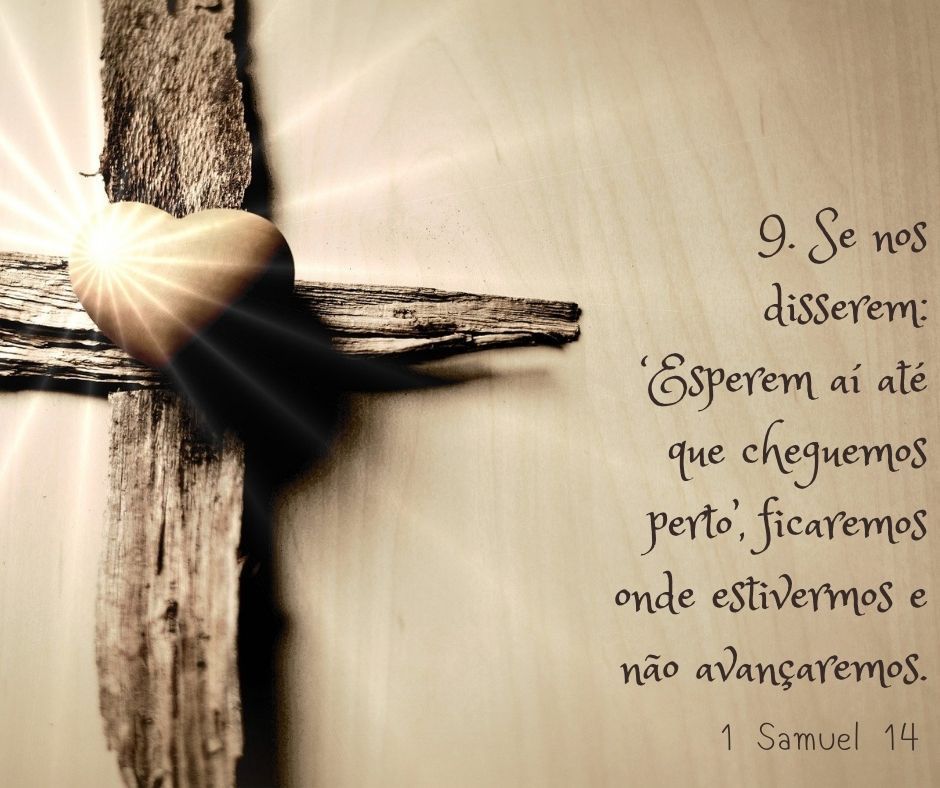 9. Se nos
disserem:
‘Esperem aí até
que cheguemos
perto’, ficaremos
onde estivermos e
não avançaremos.
1 Samuel 14